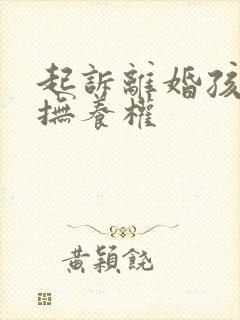 起訴離婚孩
撫養權
黃穎饒